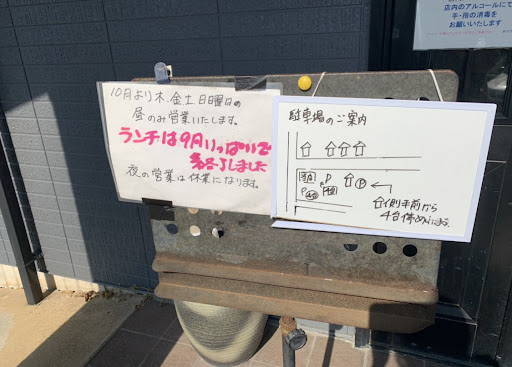 店内のアルコールにて
手・指の消毒を
お願いいたします
10月より木、金土日曜日の
昼のみ営業いたします。
ランチは9月いっぱいで
終了しました
夜の営業は休業になります。
駐車場のご案内
P
P
側手前から
4台停めれます。